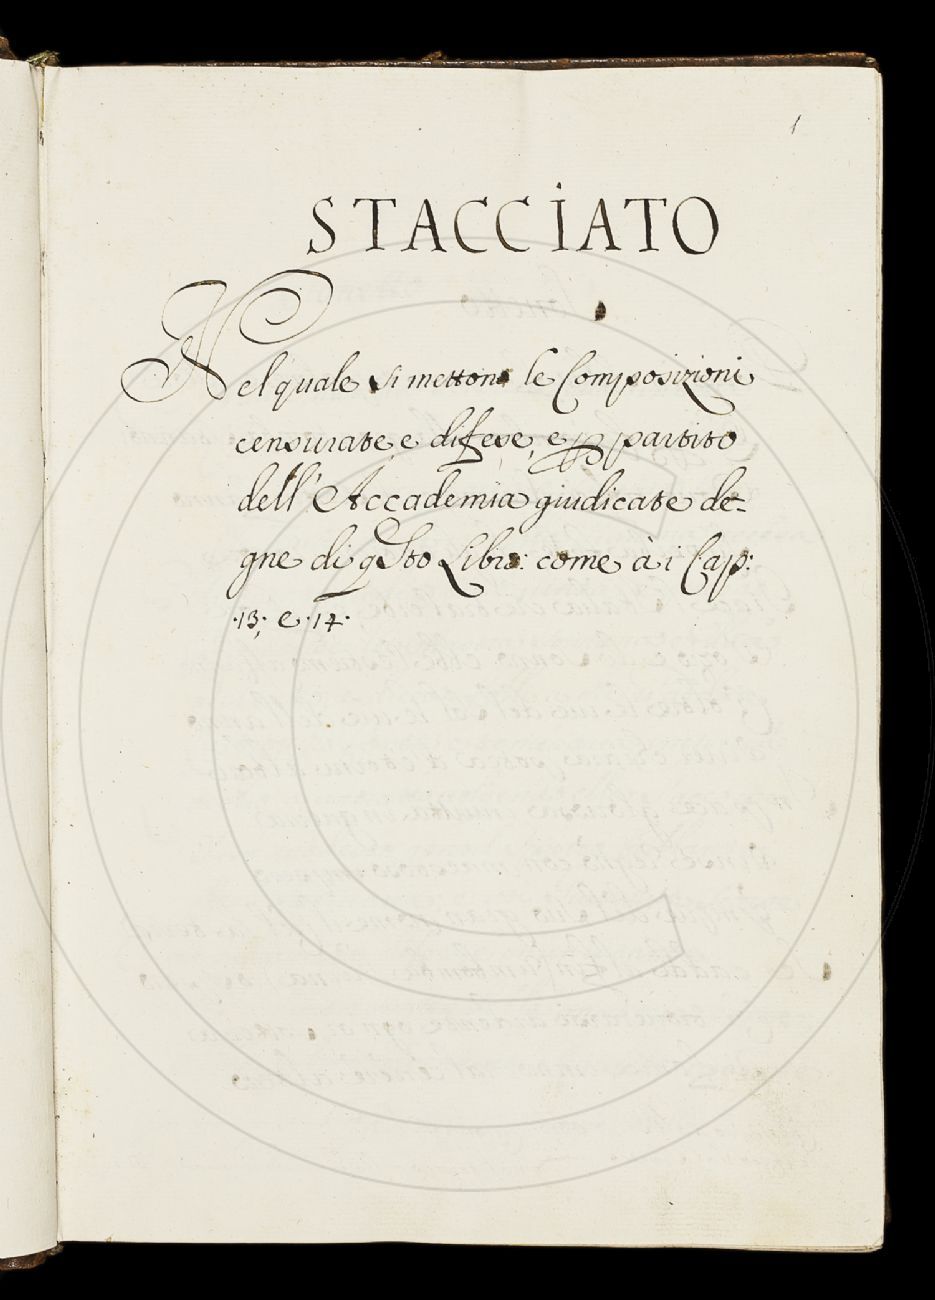 1
STACCIATO
Nel quale si mettono le Composizioni
censurate, e difese, e p partito
dell' Accademia giudicate de-
gne di qsto Libro: come à i Cap:
·13·, e ·14·